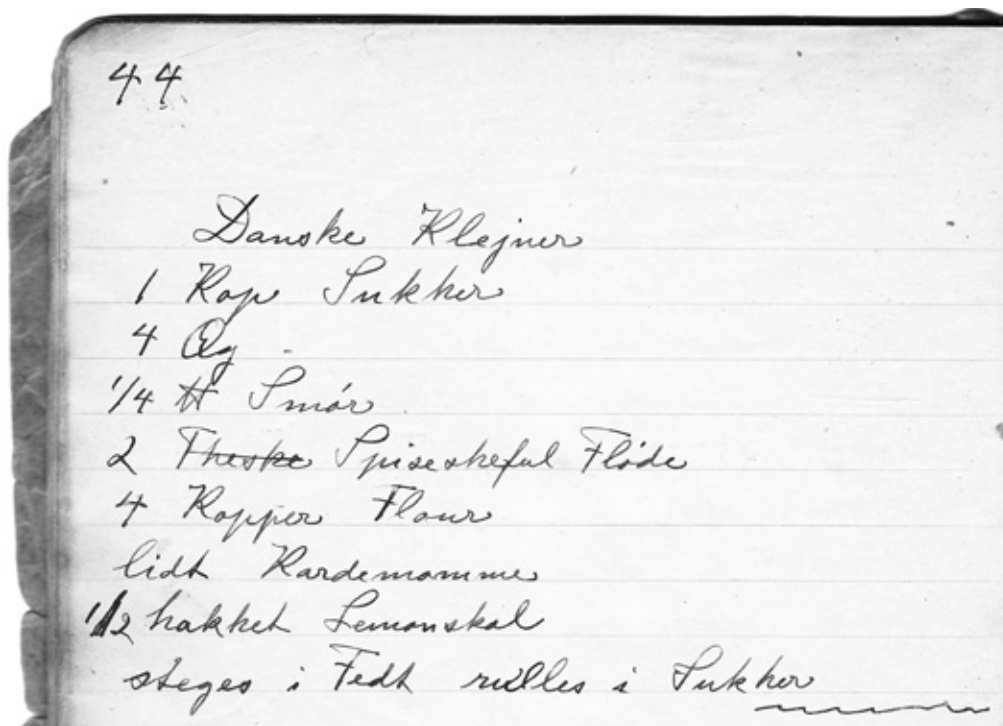 44
Danske Klejner
1 Kop Sukker
4 Æg
1/4 ℔ Smór
2 ~~Theske~~ Spiseskeful Flóde
4 Kopper Flour
lidt Kardemomme
1/2 hakket Lemonskal
steges i Fedt rulles i Sukker